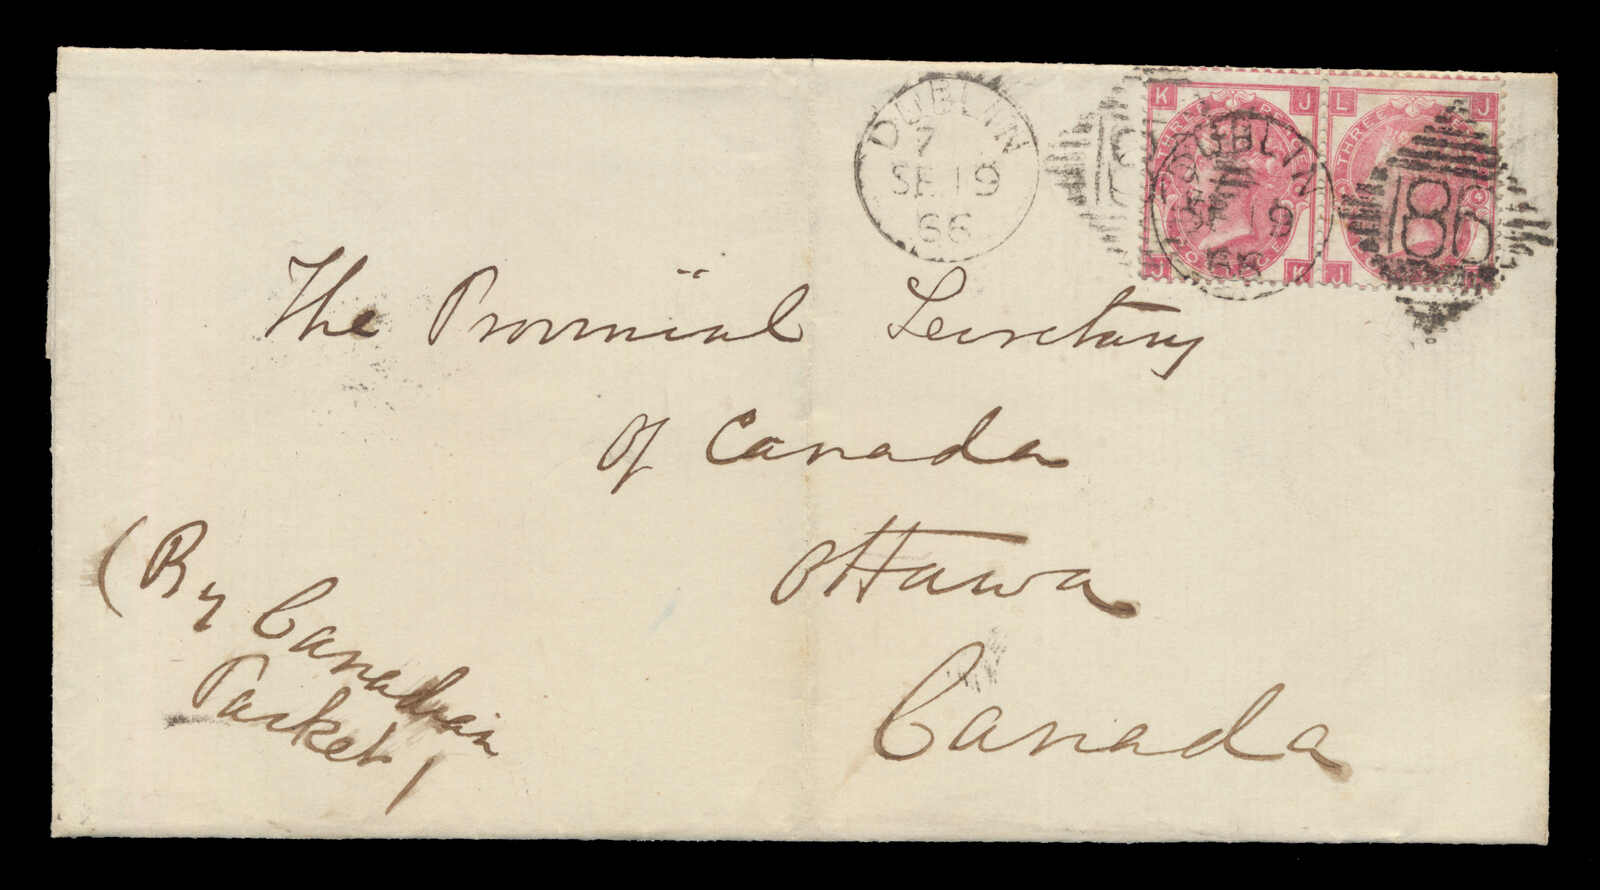 DUBLIN
7
SE 19
66
K J
THREE
J K
L J
THREE
J
DUBLIN
SE 19
66
186
The Provincial Secretary
of Canada
Ottawa
Canada
(By Canadian
Packet)